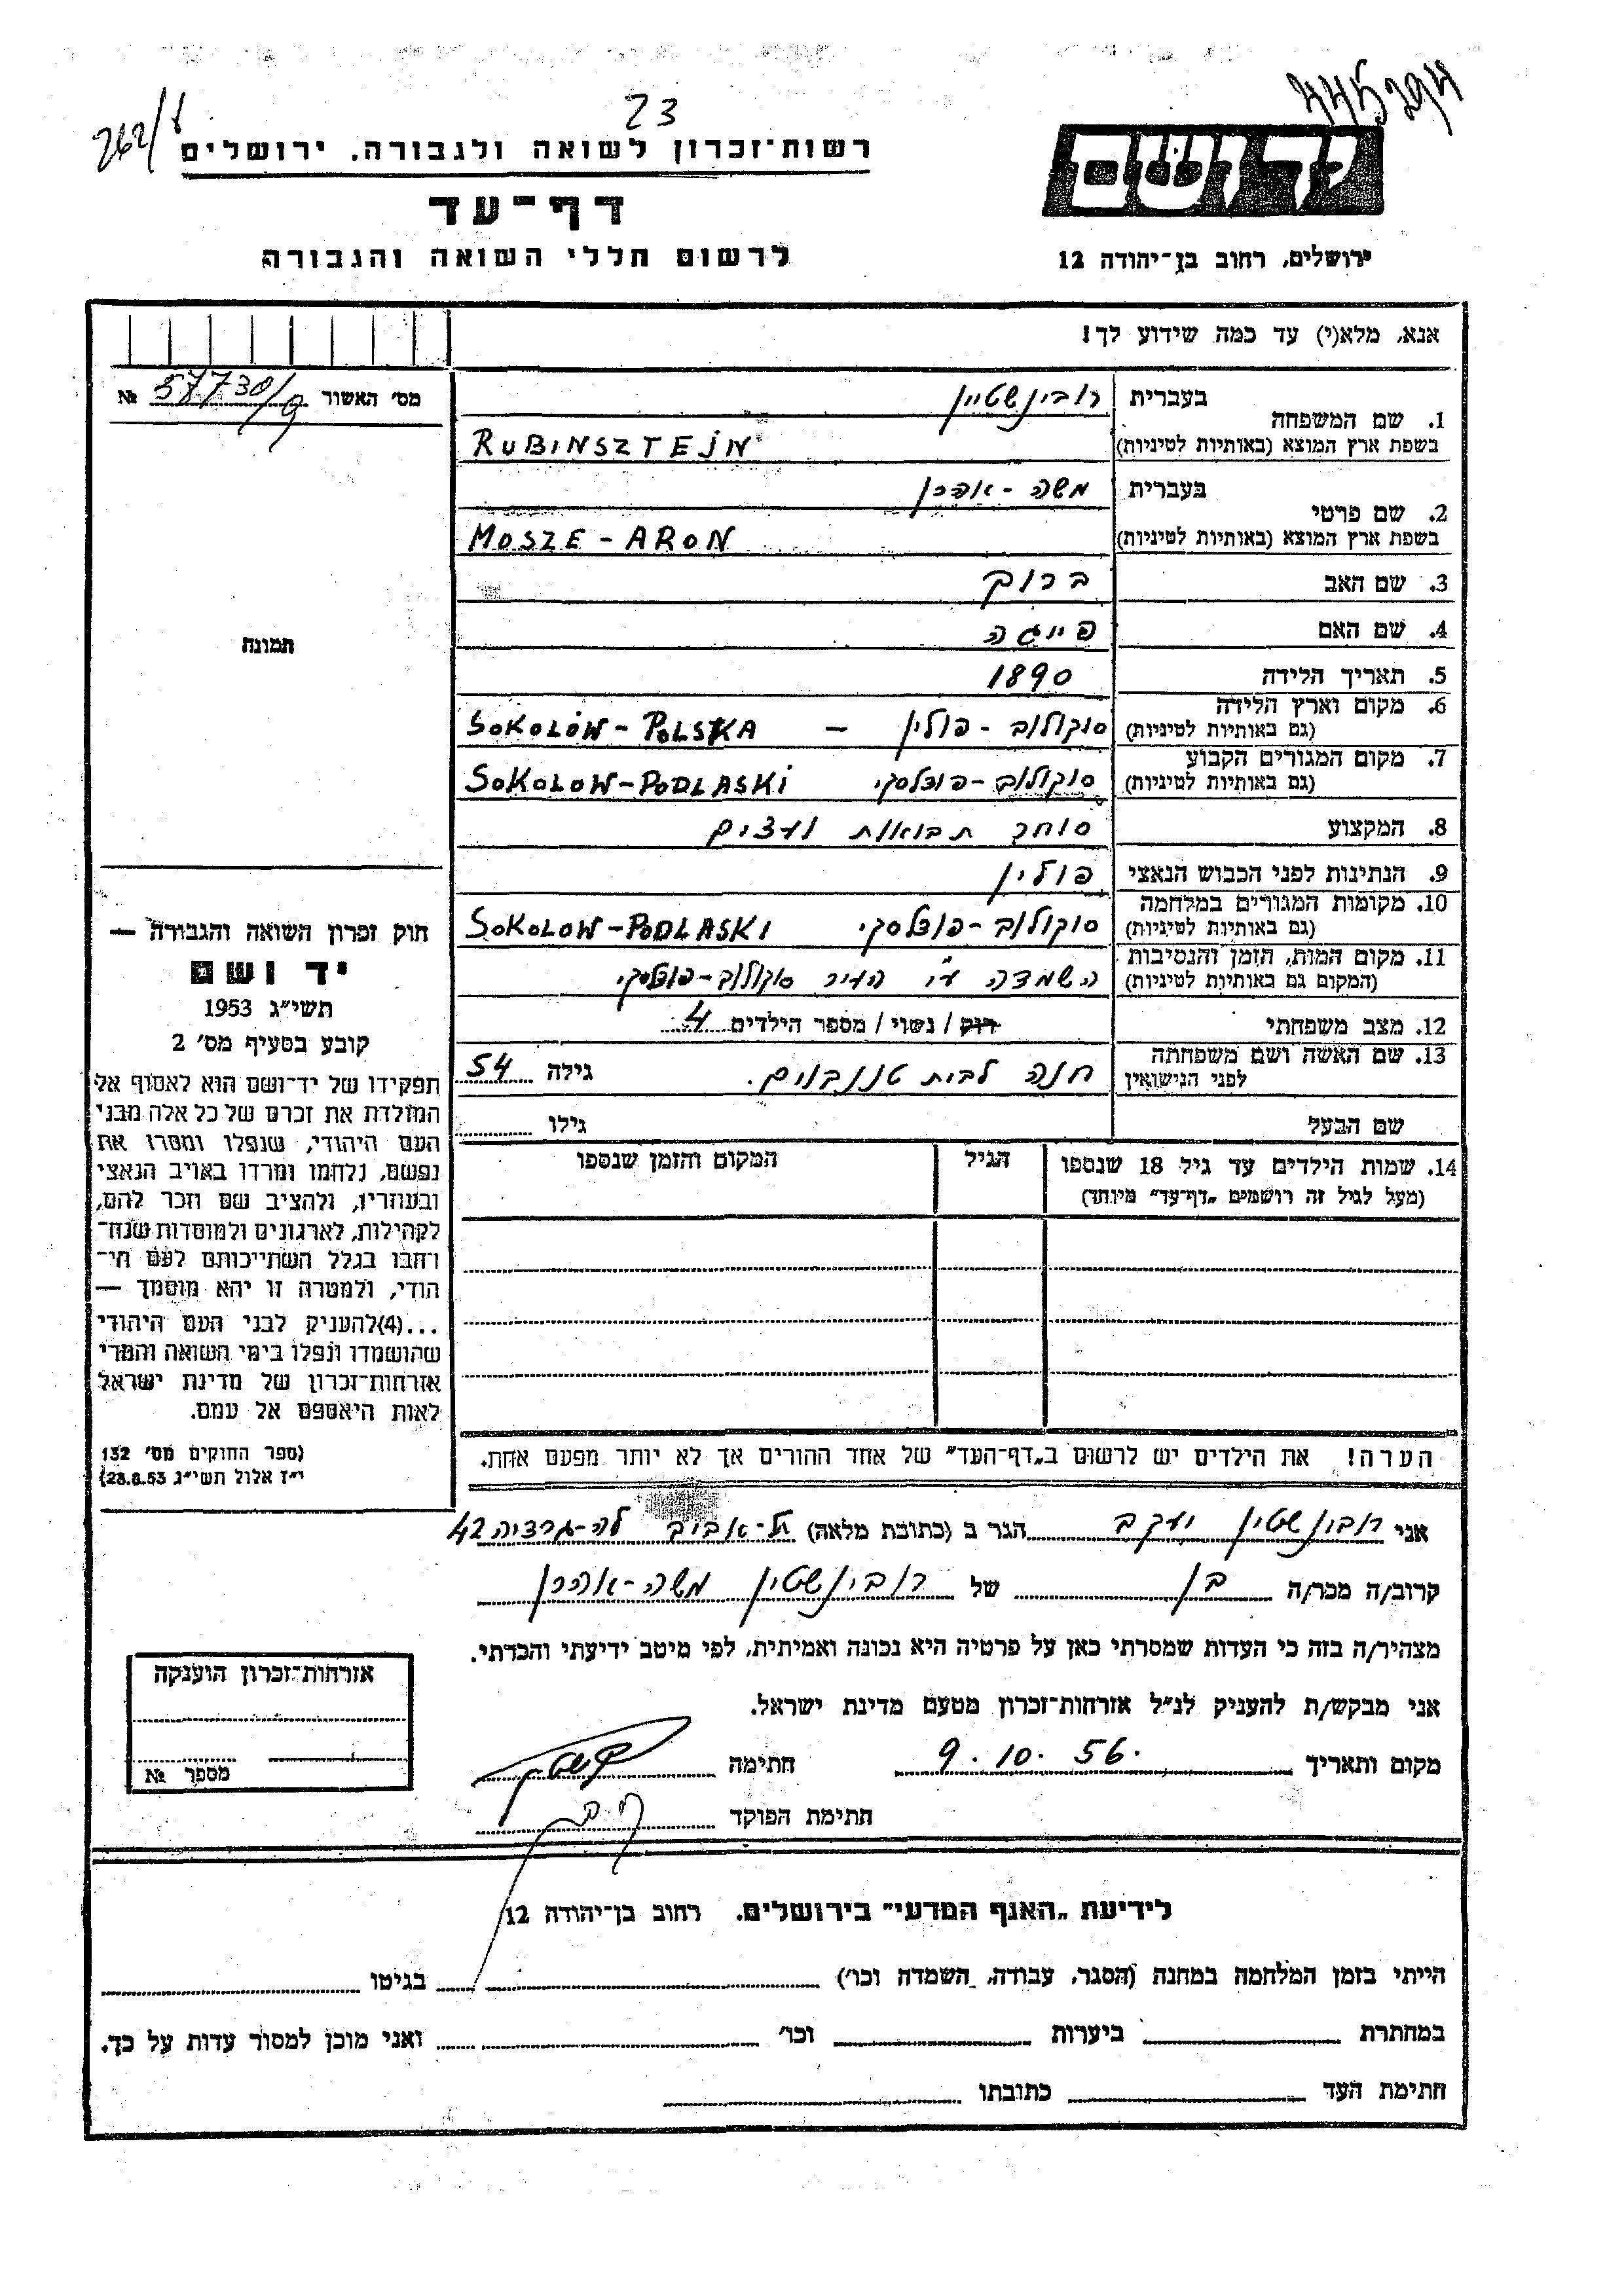 23
262/
רשות־זכרון לשואה ולגבורה, ירושלים
יד ושם
דף־עד
לרשום חללי השואה והגבורה
ירושלים, רחוב בן־יהודה 12
אנא, מלא(י) עד כמה שידוע לך!
מס' האשור 57730/9 №
1. שם המשפחה בעברית רובינשטיין
בשפת ארץ המוצא (באותיות לטיניות) RUBINSZTEJN
2. שם פרטי בעברית משה - אהרן
בשפת ארץ המוצא (באותיות לטיניות) MOSZE - ARON
3. שם האב ברוך
4. שם האם פייגה
תמונה
5. תאריך הלידה 1890
6. מקום וארץ הלידה (גם באותיות לטיניות) סוקולוב - פולין – SOKOLÓW - POLSKA
7. מקום המגורים הקבוע (גם באותיות לטיניות) סוקולוב - פודלסקי SOKOLOW - PODLASKI
8. המקצוע סוחר תבואות ועצים
9. הנתינות לפני הכבוש הנאצי פולין
10. מקומות המגורים במלחמה (גם באותיות לטיניות) סוקולוב - פודלסקי SOKOLOW - PODLASKI
11. מקום המות, הזמן והנסיבות (המקום גם באותיות לטיניות) השמדה העיר סוקולוב-פודלסקי
12. מצב משפחתי רוק / נשוי / מספר הילדים 4
13. שם האשה ושם משפחתה לפני הנישואין חנה לבית טננבוים. גילה 54
שם הבעל גילו
14. שמות הילדים עד גיל 18 שנספו הגיל המקום והזמן שנספו
(מעל לגיל זה רושמים „דף־עד" מיוחד)
הערה! את הילדים יש לרשום ב„דף־העד" של אחד ההורים אך לא יותר מפעם אחת.
חוק זכרון השואה והגבורה —
יד ושם
תשי"ג 1953
קובע בסעיף מס' 2
תפקידו של יד־ושם הוא לאסוף אל
המולדת את זכרם של כל אלה מבני
העם היהודי, שנפלו ומסרו את
נפשם, נלחמו ומרדו באויב הנאצי
ובעוזריו, ולהציב שם וזכר להם,
לקהילות, לארגונים ולמוסדות שנח־
רחבו בגלל השתייכותם לעם הי־
הודי, ולמטרה זו יהא מוסמך —
...(4)להעניק לבני העם היהודי
שהושמדו ונפלו בימי השואה והמרי
אזרחות־זכרון של מדינת ישראל
לאות היאספם אל עמם.
(ספר החוקים מס' 132
י"ז אלול תשי"ג 28.8.53)
אני רובינשטין יעקב הגר ב (כתובת מלאה) תל-אביב לה-גרדיה 42
קרוב/ה מכר/ה בן של רובינשטין משה-אהרן
מצהיר/ה בזה כי העדות שמסרתי כאן על פרטיה היא נכונה ואמיתית, לפי מיטב ידיעתי והכרתי.
אני מבקש/ת להעניק לנ"ל אזרחות־זכרון מטעם מדינת ישראל.
מקום ותאריך 9. 10. 56. חתימה
חתימת הפוקד
אזרחות־זכרון הוענקה
מספר №
לידיעת „האגף המדעי" בירושלים. רחוב בן־יהודה 12
הייתי בזמן המלחמה במחנה (הסגר, עבודה, השמדה וכו') בגיטו
במחתרת ביערות וכו' ואני מוכן למסור עדות על כך.
חתימת העד כתובתו